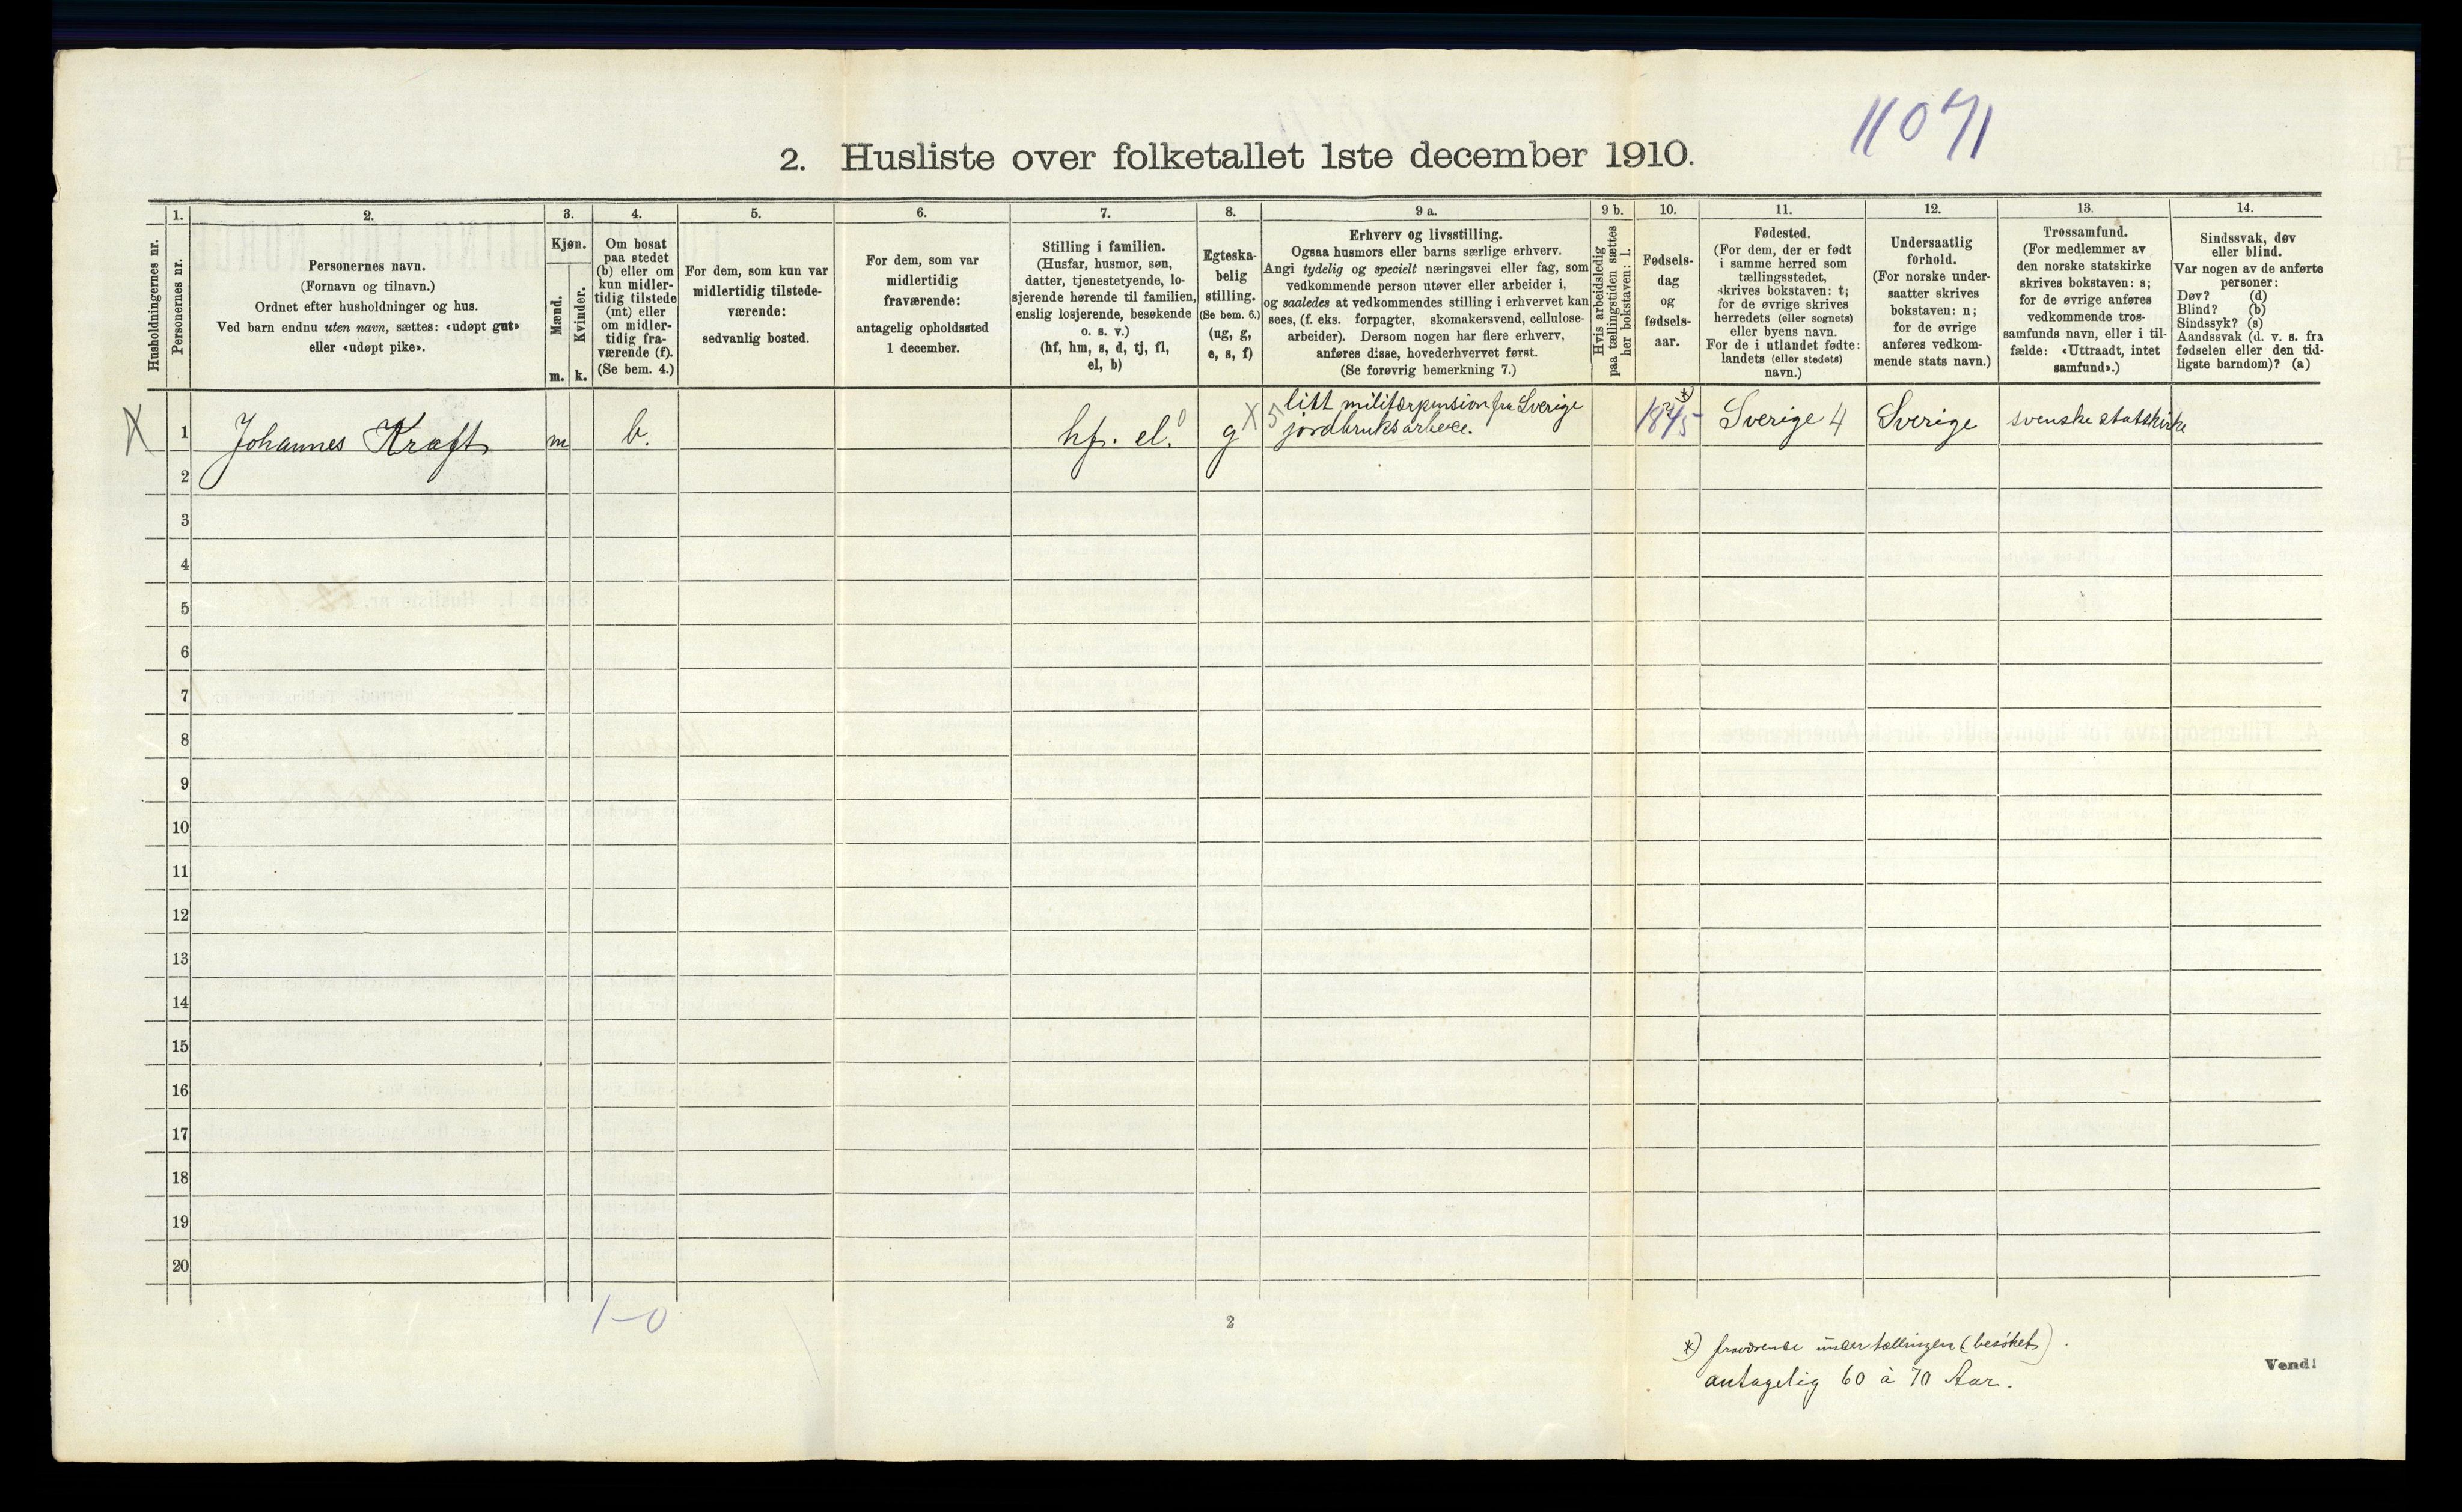 11071
2. Husliste over folketallet 1ste december 1910.
Husholdningernes nr.
1.
Personernes nr.
2.
Personernes navn.
(Fornavn og tilnavn.)
Ordnet efter husholdninger og hus.
Ved barn endnu uten navn, sættes: «udøpt gut»
eller «udøpt pike».
3.
Kjøn.
Mænd.
m.
Kvinder.
k.
4.
Om bosat
paa stedet
(b) eller om
kun midler-
tidig tilstede
(mt) eller
om midler-
tidig fra-
værende (f).
(Se bem. 4.)
5.
For dem, som kun var
midlertidig tilstede-
værende:
sedvanlig bosted.
6.
For dem, som var
midlertidig
fraværende:
antagelig opholdssted
1 december.
7.
Stilling i familien.
(Husfar, husmor, søn,
datter, tjenestetyende, lo-
sjerende hørende til familien,
enslig losjerende, besøkende
o. s. v.)
(hf, hm, s, d, tj, fl,
el, b)
8.
Egteska-
belig
stilling.
(Se bem. 6.)
(ug, g,
e, s, f)
9 a.
Erhverv og livsstilling.
Ogsaa husmors eller barns særlige erhverv.
Angi tydelig og specielt næringsvei eller fag, som
vedkommende person utøver eller arbeider i,
og saaledes at vedkommendes stilling i erhvervet kan
sees, (f. eks. forpagter, skomakersvend, cellulose-
arbeider). Dersom nogen har flere erhverv,
anføres disse, hovederhvervet først.
(Se forøvrig bemerkning 7.)
9 b.
Hvis arbeidsledig
paa tællingstiden sættes
her bokstaven: l.
10.
Fødsels-
dag
og
fødsels-
aar.
11.
Fødested.
(For dem, der er født
i samme herred som
tællingsstedet,
skrives bokstaven: t;
for de øvrige skrives
herredets (eller sognets)
eller byens navn.
For de i utlandet fødte:
landets (eller stedets)
navn.)
12.
Undersaatlig
forhold.
(For norske under-
saatter skrives
bokstaven: n;
for de øvrige
anføres vedkom-
mende stats navn.)
13.
Trossamfund.
(For medlemmer av
den norske statskirke
skrives bokstaven: s;
for de øvrige anføres
vedkommende tros-
samfunds navn, eller i til-
fælde: «Uttraadt, intet
samfund».)
14.
Sindssvak, døv
eller blind.
Var nogen av de anførte
personer:
Døv? (d)
Blind? (b)
Sindssyk? (s)
Aandssvak (d. v. s. fra
fødselen eller den tid-
ligste barndom)? (a)
X 1 Johannes Kraft m b. hf. el. 0 g X 5 litt militærpension fra Sverige
jordbruksarbeide. 1845 *) Sverige 4 Sverige svenske statskirke
2
3
4
5
6
7
8
9
10
11
12
13
14
15
16
17
18
19
20
1-0
2
*) fraværende under tællingen (besøket).
antagelig 60 à 70 Aar.
Vend!